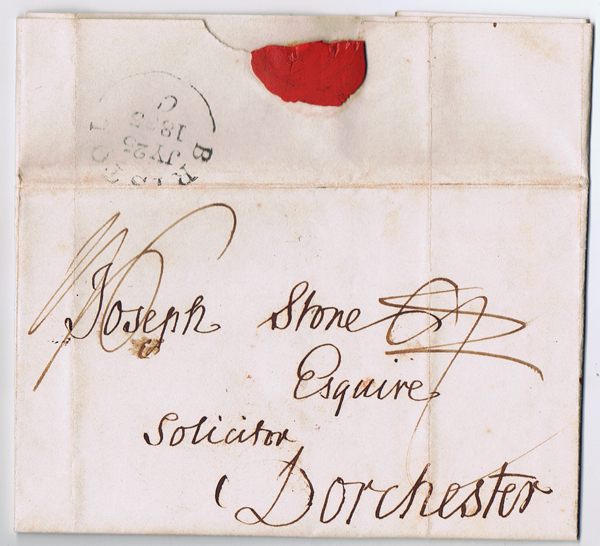 BRISTOL
JY 25
C
Joseph Stone
Esquire
Solicitor
Dorchester